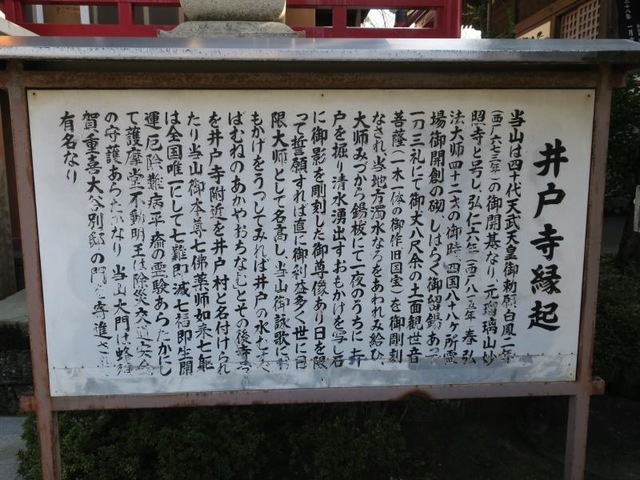 井戸寺縁起
当山は四十代天武天皇御勅願白鳳二年
（西一六七三年）の御開基なり、元瑠璃山妙
照寺と号し、弘仁六年（西一八一五年）春弘
法大師四十二才の御時、四国八十八ヶ所霊
場御開創の砌、しばらく御留錫あって
一刀三礼にて御丈八尺余の十一面観世音
菩薩（一木一体の御作旧国宝）を御彫刻
なされ、当地方濁水なるをあわれみ給ひ、
大師みづから錫杖にて一夜のうちに井
戸を掘り清水湧出すおもかげを写し石
に御影を彫刻した御尊像あり日を限
って誓願すれば直に御利益多く世に日
限大師として名高し、当山御詠歌に
もかげをうつしてみれば井戸の水むすべ
ばむねのあかやおちなむとその後
を井戸寺附近を井戸村と名付けられ
たり当山御本尊七佛薬師如来七躯
は全国唯一にして七難即滅七福即生開
運厄除難病平癒の霊験あらたかにし
て護摩堂不動明王は除災交通安全
の守護あらたかなり 当山大門は蜂須
賀重喜大谷別邸の門 寄進され
有名なり